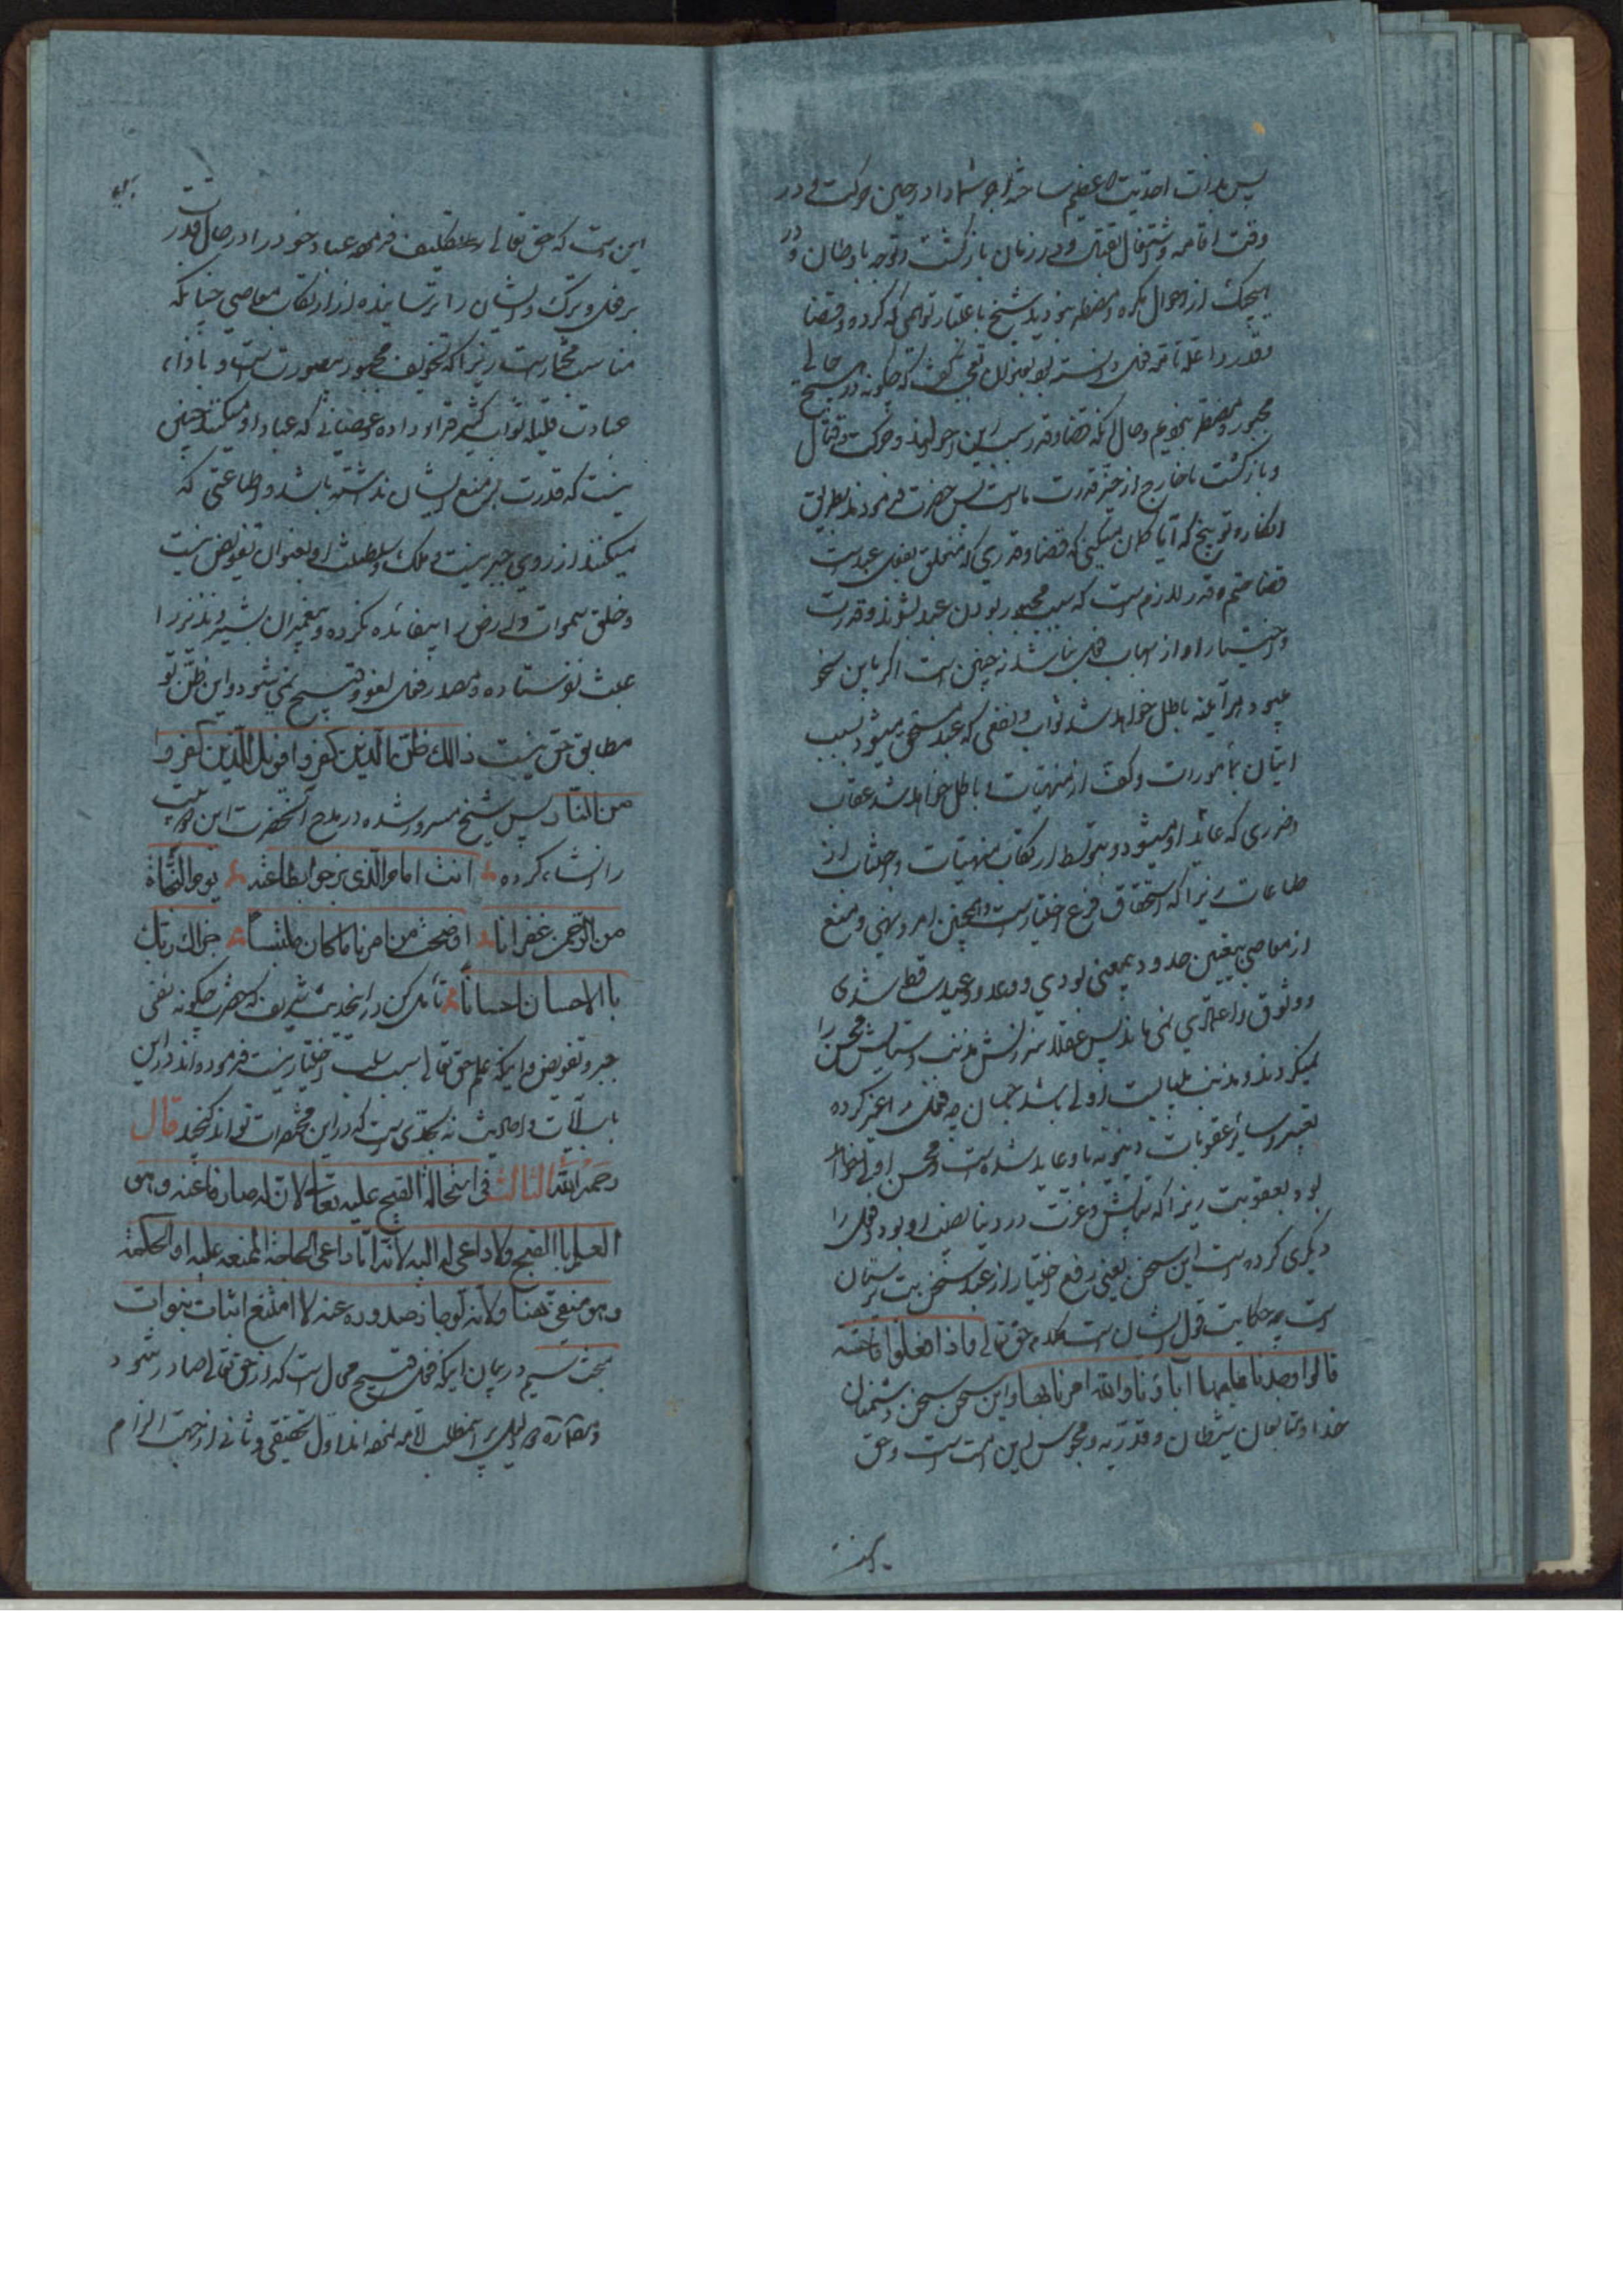 پس بدرستیکه عظیم ساخته اجر شما را در حین حرکت و در
وقت اقامه و اشتغال بقتال و در زمان بازگشت و توجه باوطان و در
هیچیک از احوال مکره و مضطر نبودید شیخ باعتبار توهمی که کرده و قضا
و قدر را علت تامه فعل دانسته بود بعنوان تعجب گفت که چگونه در هیچ حالی
مجبور و مضطر نبودیم و حال آنکه قضا و قدر سبب این احوالند و حرکت و قتال
و بازگشت ما خارج از حیز قدرت ماست پس حضرت فرمودند بطریق
انکار و توبیخ که آیا گمان میکنی که قضا و قدری که متعلق بفعل عبد است
قضا حتم و قدر لازم است که سبب مجبور بودن عبد بشوند و قدرت
و اختیار او از اسباب فعل نباشد نه چنین است اگر باین نحو
میبود هرآینه باطل خواهد شد ثواب و نفعی که عبد مستحق میشود بسبب
اتیان بمأمورات و کف از منهیات و باطل خواهد شد عقاب
و ضرری که عائد او میشود بتوسط ارتکاب منهیات و اجتناب از
طاعات زیرا که استحقاق فرع اختیار است و همچنین امر و نهی و منع
از معاصی بتعیین حدود بیمعنی بودی و وعد و وعید ساقط شدی
و وثوق و اعتمادی نمی ماند پس عقلا سرزنش مذنب و ستایش محسن را
نمیکردند و مذنب
تعییر و سایر عقوبات دنیویه باو عاید شده است و محسن اولی خواهد
بود بعقوبت زیرا که ستایش و عزت در دنیا نصیب او بود و فعل را
دیگری کرده است این سخن یعنی رفع اختیار از عبد سخن بت پرستان
است چه حکایت قول ایشان است کلام حق تعالی و اذا فعلوا فاحشه
قالوا وجدنا علیها آباؤنا والله امرنا بها و این سخن سخن دشمنان
خدا و تابعان شیطان و قدریه و مجوس این امت است و حق
این است که حق تعالی تکلیف فرموده عباد خود را در حال قدرت
بر فعل و ترک و ایشان را ترسانیده از ارتکاب معاصی چنانکه
مناسب مختار است زیرا که تخویف مجبور بیصورت است و باداء
عبادت قلیله ثواب کثیر قرار داده و عصیانی که عباد او میکنند چنین
نیست که قدرت بر منع ایشان نداشته باشد و اطاعتی که
میکنند از روی جبر نیست و ملک و سلطنت او بعنوان تفویض نیست
و خلق سموات و ارض را بیفائده نکرده و پیغمبران بشیر و نذیر را
عبث نفرستاده و مصدر فعل لغو و قبیح نمی شود و این ظن تو
مطابق حق نیست ذالك ظن الذین کفروا فویل للذین کفروا
من النار پس شیخ مسرور شده در مدح آنحضرت این دو بیت
را انشاء کرده انت امام الذی نرجو بطاعته یوم النجاة
من الرحمن غفرانا اوضحت من امرنا ما کان ملتبساً جزاك ربك
باالاحسان احسانا تأمل کن در اینحدیث شریف که حضرت چگونه نفی
جبر و تفویض و اینکه علم حق تعالی سبب سلب اختیار نیست فرموده اند و در این
باب آیات و احادیث نه بحدی است که در این مختصرات تواند گنجید قال
رحمه الله الثالث فی استحالة القبح علیه تعالی لان له صارفا عنه و هو
العلم باالقبح ولا داعی له الیه لانه اما داعی الحاجة الممتنعه علیه او الحکمة
و هو منتفی هنا ولانه لو جاز صدوره عنه لا امتنع اثبات نبوات
مبحث سیم در بیان اینکه فعل قبیح محال است که از حق تعالی صادر شود